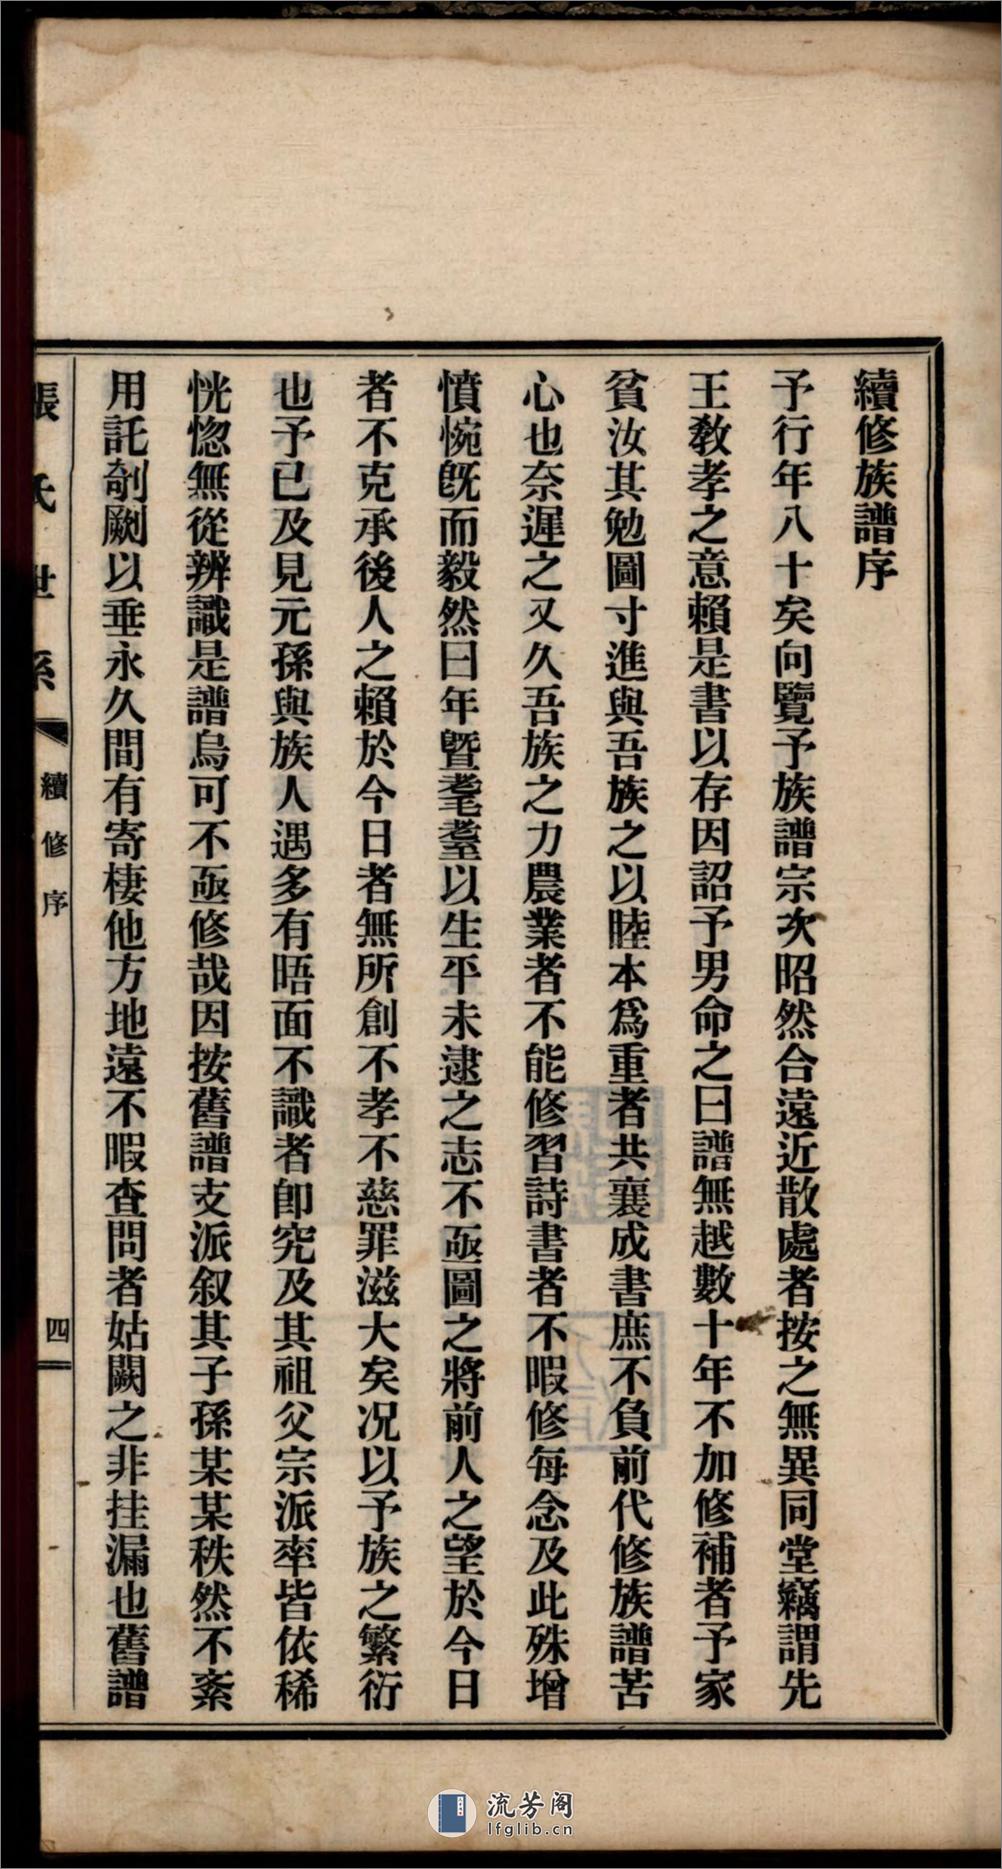 續修族譜序
予行年八十矣向覽予族譜宗次昭然合遠近散處者按之無異同堂竊謂先
王敎孝之意賴是書以存因詔予男命之曰譜無越數十年不加修補者予家
貧汝其勉圖寸進與吾族之以睦本爲重者共襄成書庶不負前代修族譜苦
心也奈遲之又久吾族之力農業者不能修習詩書者不暇修每念及此殊增
憤惋旣而毅然曰年曁耄耋以生平未逮之志不亟圖之將前人之望於今日
者不克承後人之賴於今日者無所創不孝不慈罪滋大矣况以予族之繁衍
也予已及見元孫與族人遇多有晤面不識者卽究及其祖父宗派率皆依稀
恍惚無從辨識是譜烏可不亟修哉因按舊譜支派叙其子孫某某秩然不紊
用託剞劂以垂永久間有寄棲他方地遠不暇查問者姑闕之非挂漏也舊譜
張氏世系
續修序
四
流芳阁
lfglib.cn